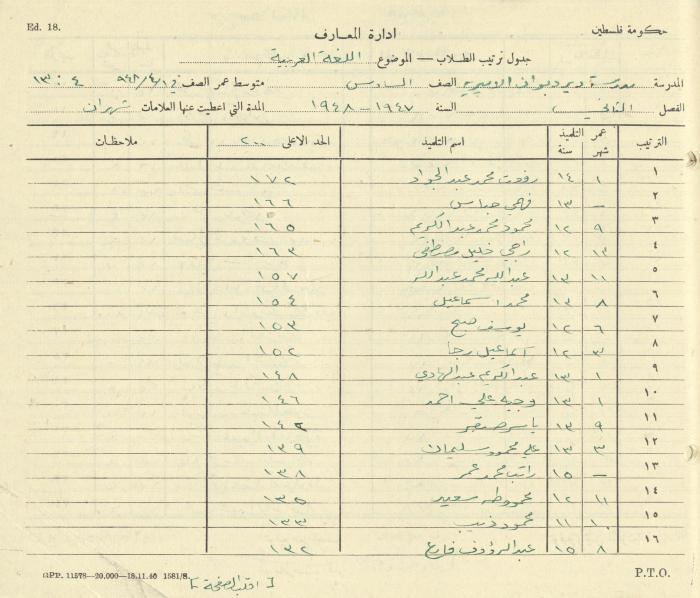 Ed. 18.
حكومة فلسطين
ادارة المعارف
جدول ترتيب الطلاب — الموضوع اللغة العربية
المدرسة مدرسة ديردبوان الاميرية الصف السادس متوسط عمر الصف في ١/٤/٩٤٨ ٤ : ١٣
الفصل الثاني السنة ١٩٤٧ – ١٩٤٨ المدة التي اعطيت عنها العلامات شهران
الترتيب عمر التلميذ شهر سنة اسم التلميذ الحد الاعلى ٢٠٠ ملاحظات
١ ١ ١٤ رفعت محمد عبد الجواد ١٧٢
٢ – ١٣ فهمي عباس ١٦٦
٣ ٩ ١٢ محمود محمد عبد الكريم ١٦٥
٤ ١٢ راجي خليل مصطفى ١٦٣
٥ ١١ ١٣ عبدالله محمد عبدالله ١٥٧
٦ ٨ ١٣ محمد اسماعيل ١٥٤
٧ ٦ ١٢ يوسف صبح ١٥٣
٨ ٣ ١٢ اسماعيل رجا ١٥٢
٩ ١ ١٣ عبدالكريم عبدالهادي ١٤٨
١٠ ١ ١٣ وجيه علي احمد ١٤٦
١١ ٩ ١٣ ياسر صقر ١٤٢
١٢ ٣ ١٣ علي محمود سليمان ١٣٩
١٣ – ١٥ راتب محمد عمر ١٣٨
١٤ ١١ ١٢ محمود طه سعيد ١٣٥
١٥ ١٠ ١١ محمود ذيب ١٣٣
١٦ ٨ ١٥ عبد الرؤوف فارع ١٣٢
GPP. 11578—20.000—18.11.40 1581/S.
[ اقلب الصفحة ]
P.T.O.